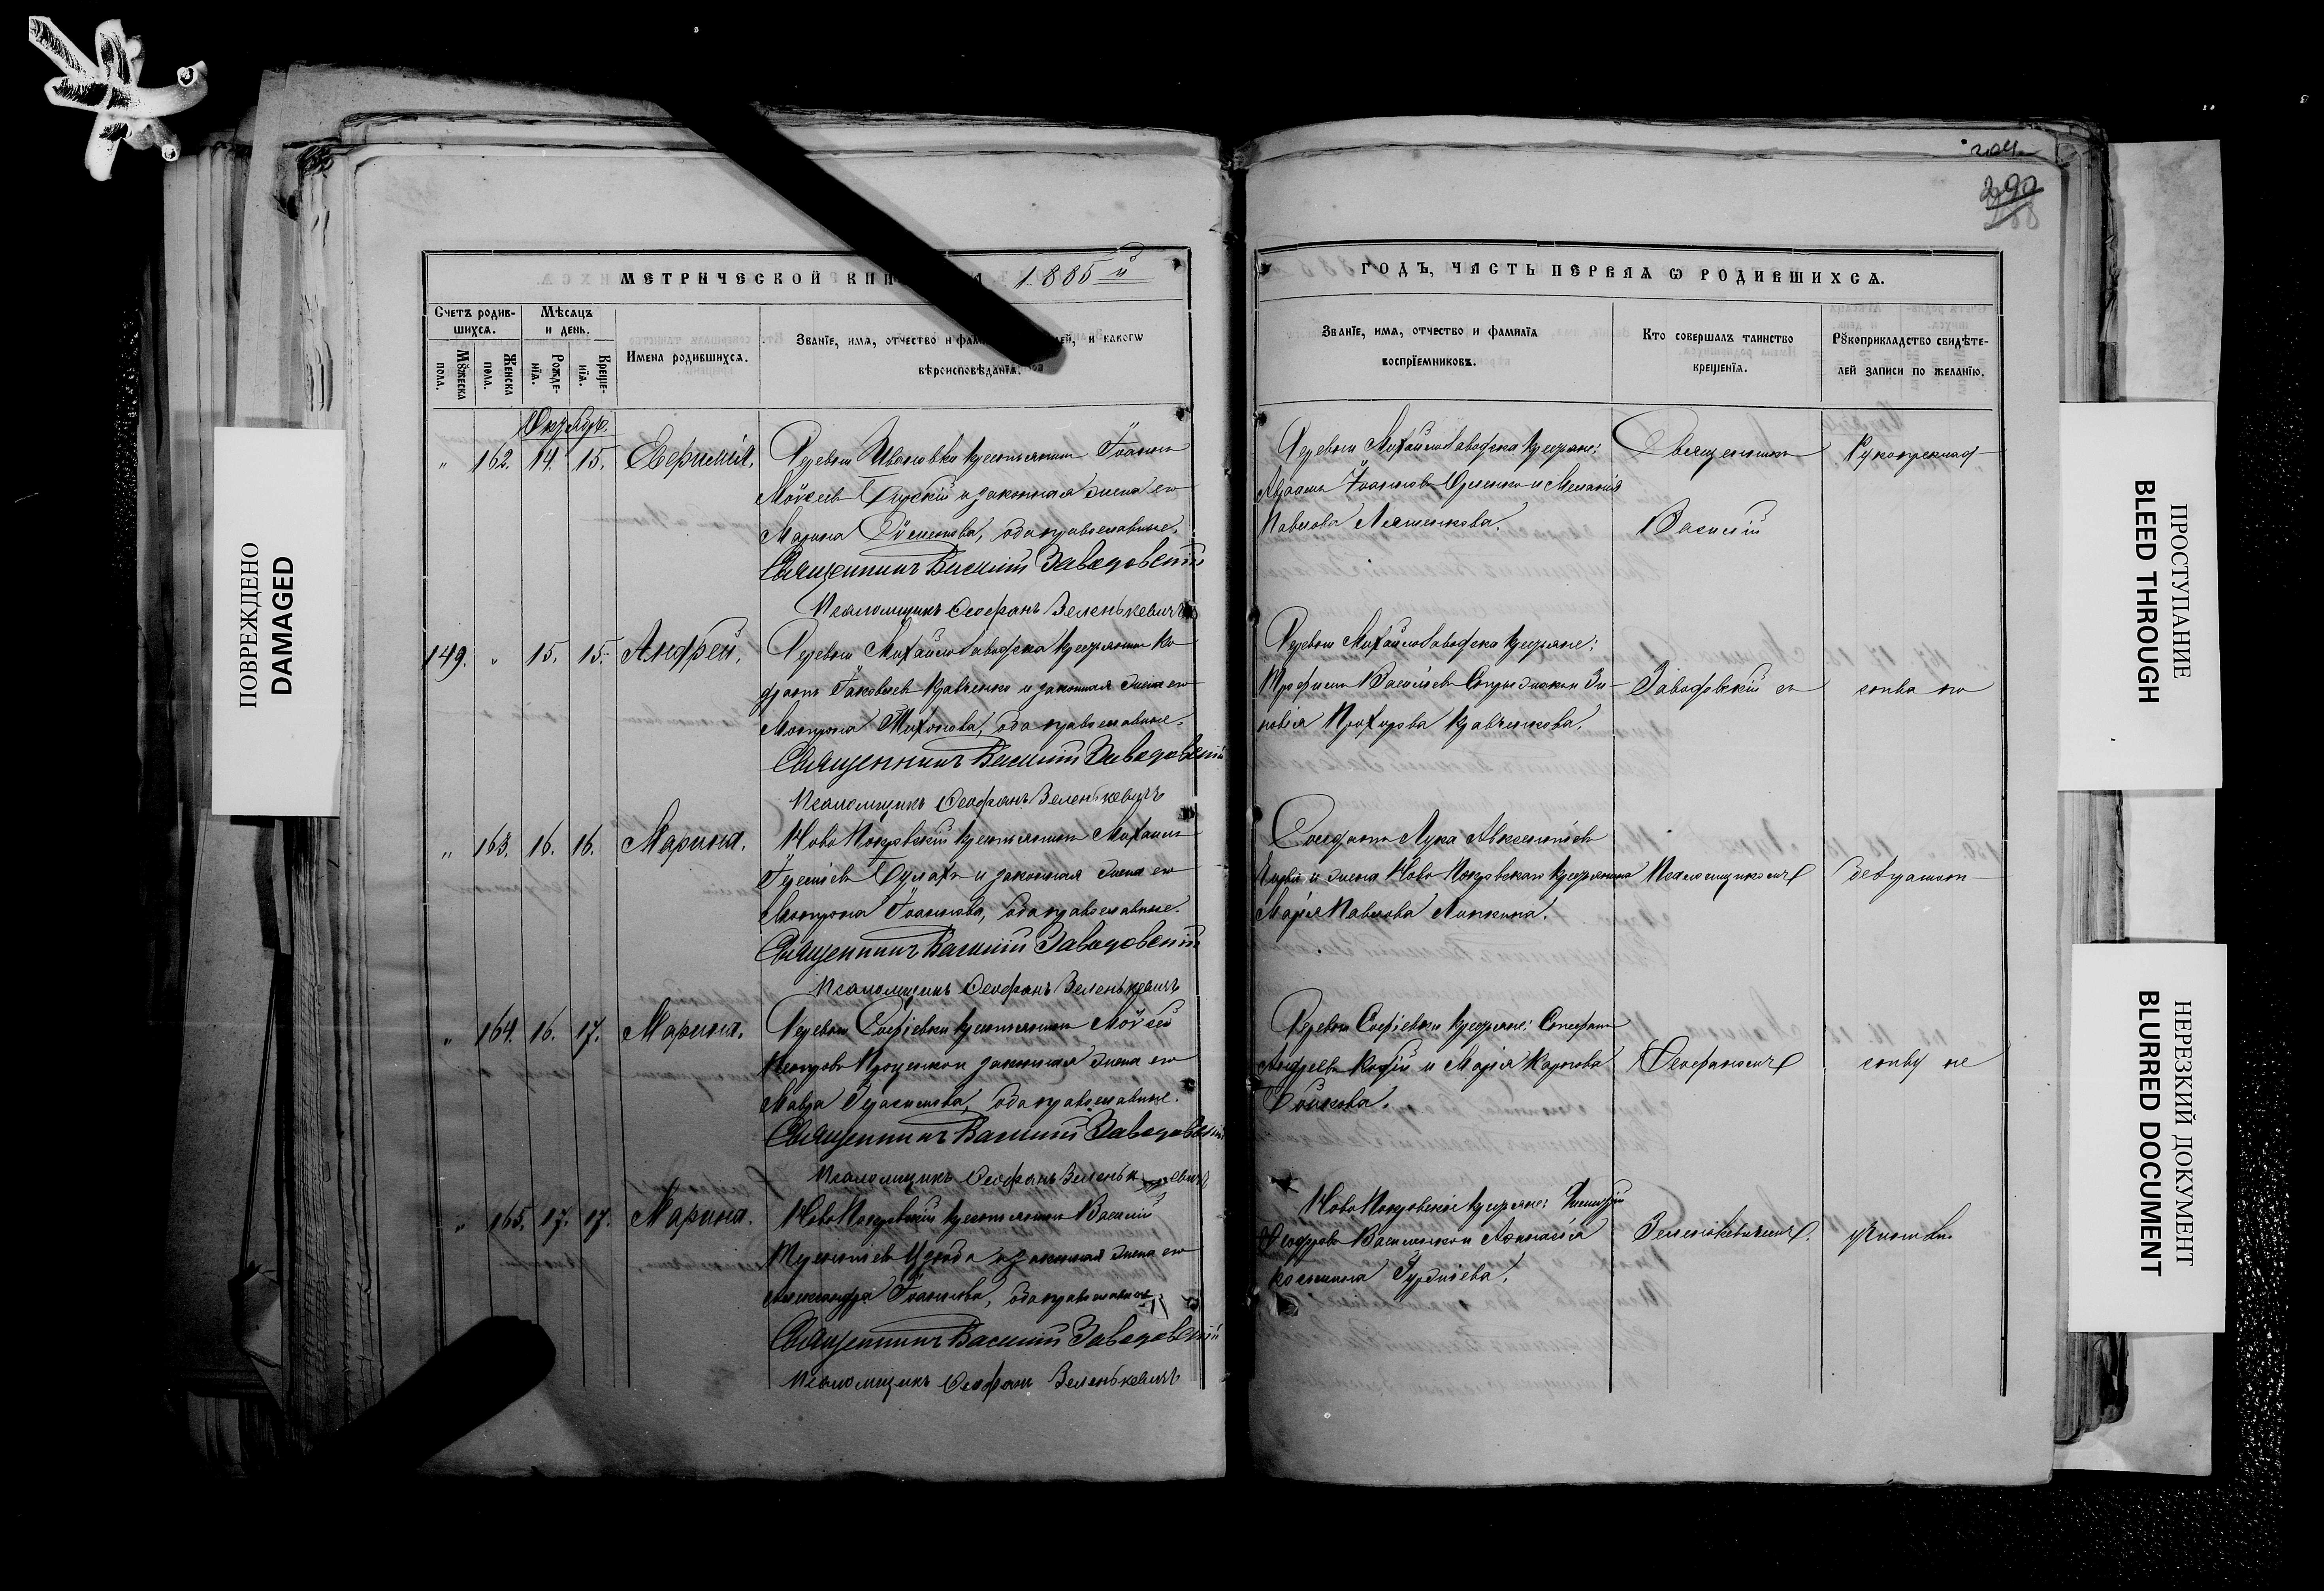 204
290
188
МЕТРИЧЕСКОЙ КНИ 1885й
ГОДЪ, ЧАСТЬ ПЕРВАЯ Ѡ РОДИВШИХСѦ.
Счетъ родив-
шихсѧ.
Мѣсѧцъ
и день.
Мꙋжеска
пола.
Женска
пола.
Рожде-
нїѧ.
Креще-
нїѧ.
Имена родившихсѧ.
Званїе, имѧ, отчество и фами лей, и какогѡ
вѣроисповѣданїѧ.
Званїе, имѧ, отчество и фамилїѧ
воспрїемниковъ.
Кто совершалъ таинство
крещенїѧ.
Рꙋкоприкладство свидѣте-
лей записи по желанїю.
Октябрь.
" 162. 14. 15. Евфимія.
Деревни Ивановки крестьянинъ Іоаннъ
Моѵсеевъ и законная жена его
Марина, оба православные.
Священникъ Василий Заводовский
Псаломщикъ Ѳеофанъ Зеленькевичъ
Деревни Михайлозаводска крестьяне:
Іоанновъ и Меланія
Павлова
Священникъ
Василій
Рукоприклад-
149. " 15. 15. Андрей.
Деревни Михайлозаводска крестьянинъ Ко-
дратъ Іаковлевъ Кравченко и законная жена его
Матрона, оба православные.
Священникъ Василий Заводовский
Псаломщикъ Ѳеофанъ Зеленькевичъ
Деревни Михайлозаводска крестьяне:
Трофимъ Васильевъ и Зи-
новія Прохорова Кравченкова.
Заводовскій съ
ства по
" 163. 16. 16. Марина.
Ново Покровскій крестьянинъ Михаилъ
и законная жена его
Матрона Іоаннова, оба православные.
Священникъ Василий Заводовский
Псаломщикъ Ѳеофанъ Зеленькевичъ
Солдатъ Лука Авксентіевъ
и жена Ново Покровскаго крестьянина
Марія Павлова
Псаломщикомъ
безграмот-
" 164. 16. 17. Марина.
Деревни Софіевки крестьянинъ Моѵсей
Петровъ Проценко и законная жена его
Мавра Герасимова, оба православные.
Священникъ Василий Заводовский
Псаломщикъ Ѳеофанъ Зеленькевичъ
Деревни Софіевки крестьяне:
Андреевъ и Марія Карпова
Бойкова.
Ѳеофаномъ
ству не
" 165. 17. 17. Марина.
Ново Покровскій крестьянинъ Василій
Терентьевъ и законная жена его
Александра Іоаннова, оба православные.
Священникъ Василий Заводовский
Псаломщикъ Ѳеофанъ Зеленькевичъ
Ново Покровскіе крестьяне:
Ѳеодоровъ Василенко и Аѳанасія
Косьмина
Зеленькевичемъ.
учинили.
ПОВРЕЖДЕНО
DAMAGED
ПРОСТУПАНИЕ
BLEED THROUGH
НЕРЕЗКИЙ ДОКУМЕНТ
BLURRED DOCUMENT